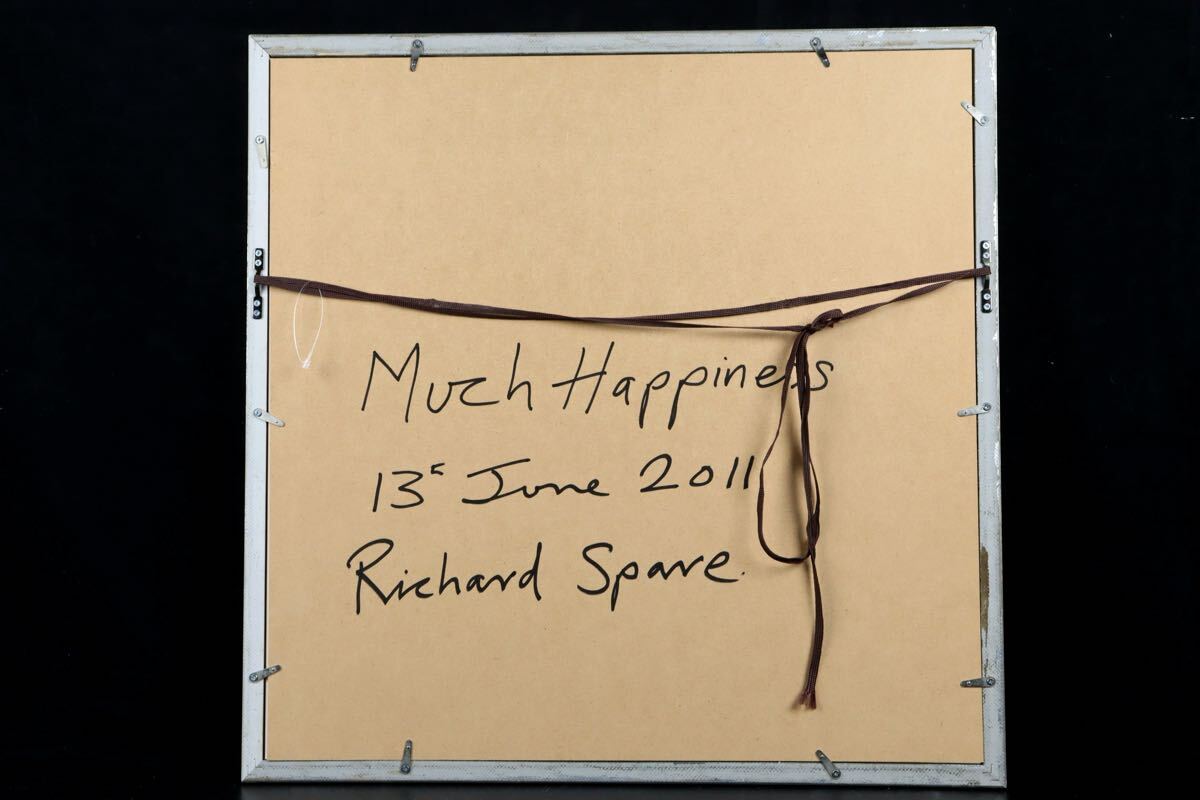 Much Happiness
13 June 2011
Richard Spare.